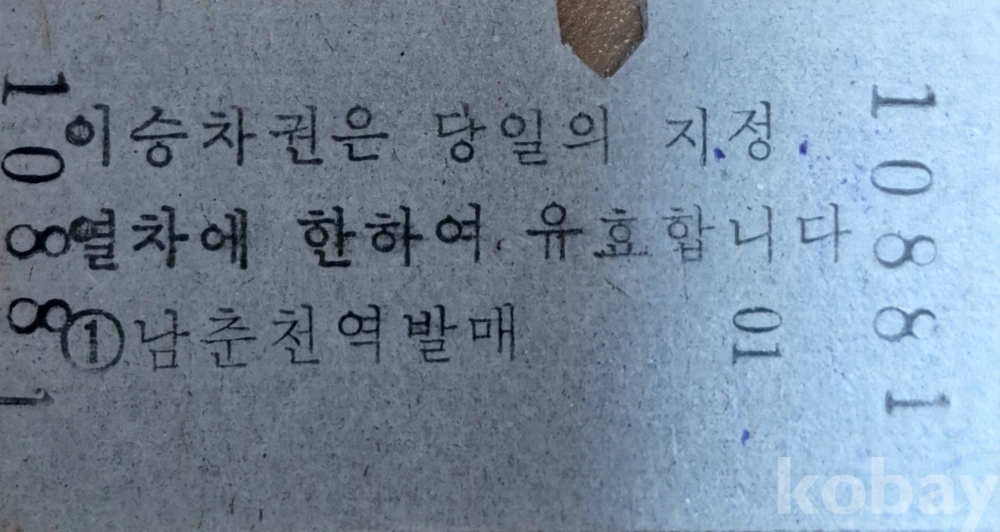 이승차권은 당일의 지정
열차에 한하여 유효합니다
①남춘천역발매
01
10881
10881
kobay